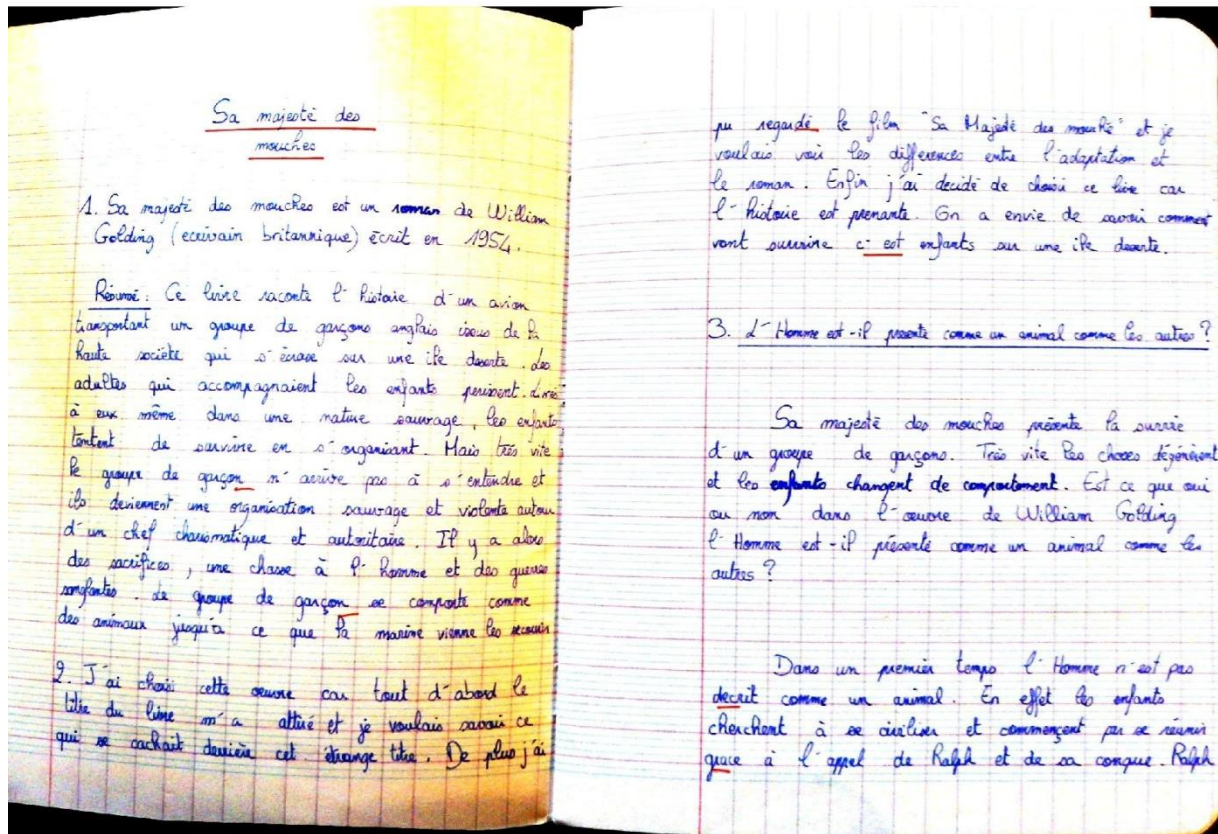 Sa majesté des
mouches
1. Sa majesté des mouches est un roman de William
Golding (ecrivain britannique) écrit en 1954.
Résumé : Ce livre raconte l'histoire d'un avion
transportant un groupe de garçons anglais issus de la
haute société qui s'écrase sur une île deserte. Les
adultes qui accompagnaient les enfants perissent. Livrés
à eux même dans une nature sauvage, les enfants
tentent de survivre en s'organisant. Mais très vite
le groupe de garçon n'arrive pas à s'entendre et
ils deviennent une organisation sauvage et violente autour
d'un chef charismatique et autoritaire. Il y a alors
des sacrifices, une chasse à l'homme et des guerres
sanglantes. Le groupe de garçon se comporte comme
des animaux jusqu'à ce que la marine vienne les secourir
2. J'ai choisi cette oeuvre car tout d'abord le
titre du livre m'a attiré et je voulais savoir ce
qui se cachait derrière cet étrange titre. De plus j'ai
pu regardé le film "Sa Majesté des mouche" et je
voulais voir les differences entre l'adaptation et
le roman. Enfin j'ai décidé de choisir ce livre car
l'histoire est prenante. On a envie de savoir comment
vont survivre c'est enfants sur une ile deserte.
3. L'Homme est-il presenté comme un animal comme les autres ?
Sa majesté des mouches présente la survie
d'un groupe de garçons. Très vite les choses dégénèrent
et les enfants changent de comportement. Est ce que oui
ou non dans l'oeuvre de William Golding
l'Homme est-il présenté comme un animal comme les
autres ?
Dans un premier temps l'Homme n'est pas
decrit comme un animal. En effet les enfants
cherchent à se civiliser et commencent par se réunir
grace à l'appel de Ralph et de sa conque. Ralph